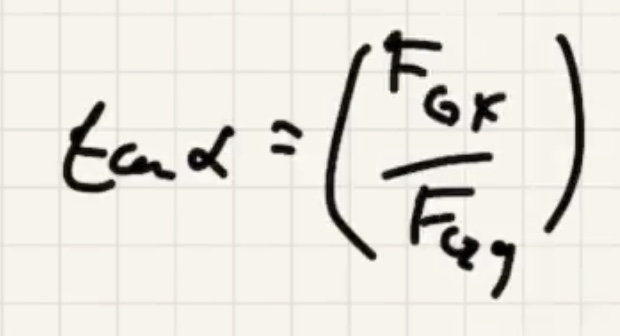 tan α = (F_Gx / F_Gy)